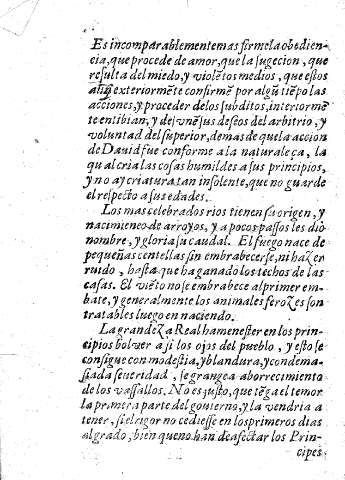 Es incomparablemente mas firme la obedien-
cia, que procede de amor, que la sugecion, que
resulta del miedo, y violẽtos medios, que estos
aũq̃ exteriormẽte confirmẽ por algũ tiẽpo las
acciones, y proceder de los subditos, interiormẽ
te entibian, y desvnẽ sus deseos del arbitrio, y
voluntad del superior, demas de que la accion
de Dauid fue conforme a la naturaleça, la
qual cria las cosas humildes a sus principios,
y no ay criatura tan insolente, que no guarde
el respecto a sus edades.
Los mas celebrados rios tienen su origen, y
nacimieneo de arroyos, y a pocos passos les dio
nombre, y gloria su caudal. El fuego nace de
pequeñas centellas sin embrabecerse, ni hazer
ruido, hasta que ha ganado los techos de las
casas. El viẽto no se embrabece al primer em-
bate, y generalmente los animales ferozes son
tratables luego en naciendo.
La grandeza Real ha menester en los prin-
cipios bolver a si los ojos del pueblo, y esto se
consigue con modestia, y blandura, y con dema-
siada seueridad, se grangea aborrecimiento
de los vassallos. No es justo, que tẽga el temor
la primera parte del gouierno, y la vendria a
tener, si el rigor no cediesse en los primeros dias
al grado, bien que no han de afectar los Prin-
cipes